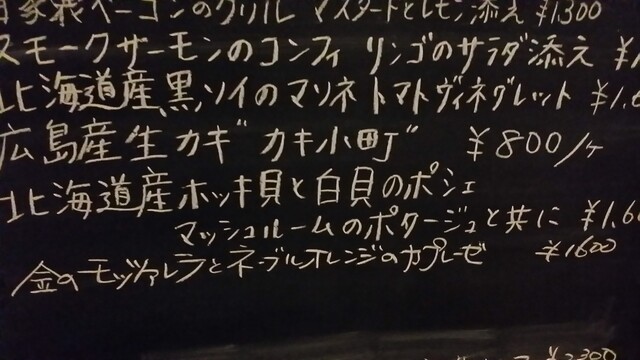 自家製ベーコンのグリル マスタードとレモン添え ¥1300
スモークサーモンのコンフィ リンゴのサラダ添え ¥1
北海道産黒ソイのマリネ トマトヴィネグレット ¥1.
広島産生カキ"カキ小町" ¥800/ヶ
北海道産ホッキ貝と白貝のポシェ
マッシュルームのポタージュと共に ¥1.6
金のモッツァレラとネーブルオレンジのカプレーゼ ¥1600